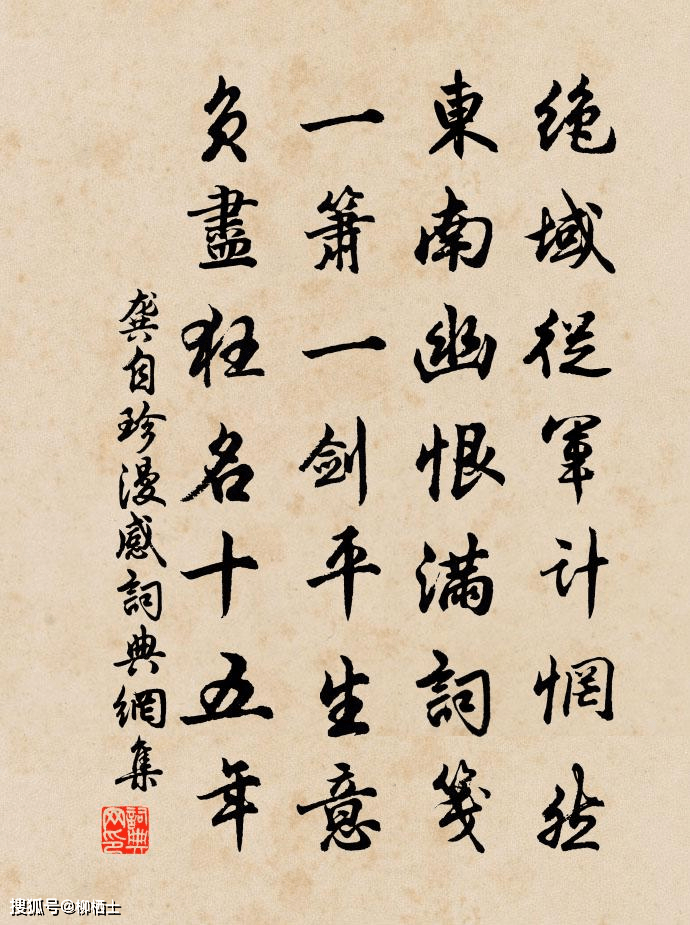 绝域從軍計惘然
東南幽恨滿詞箋
一簫一劍平生意
負盡狂名十五年
龔自珍漫感詞典網集
詞典网印
搜狐号@柳栖士